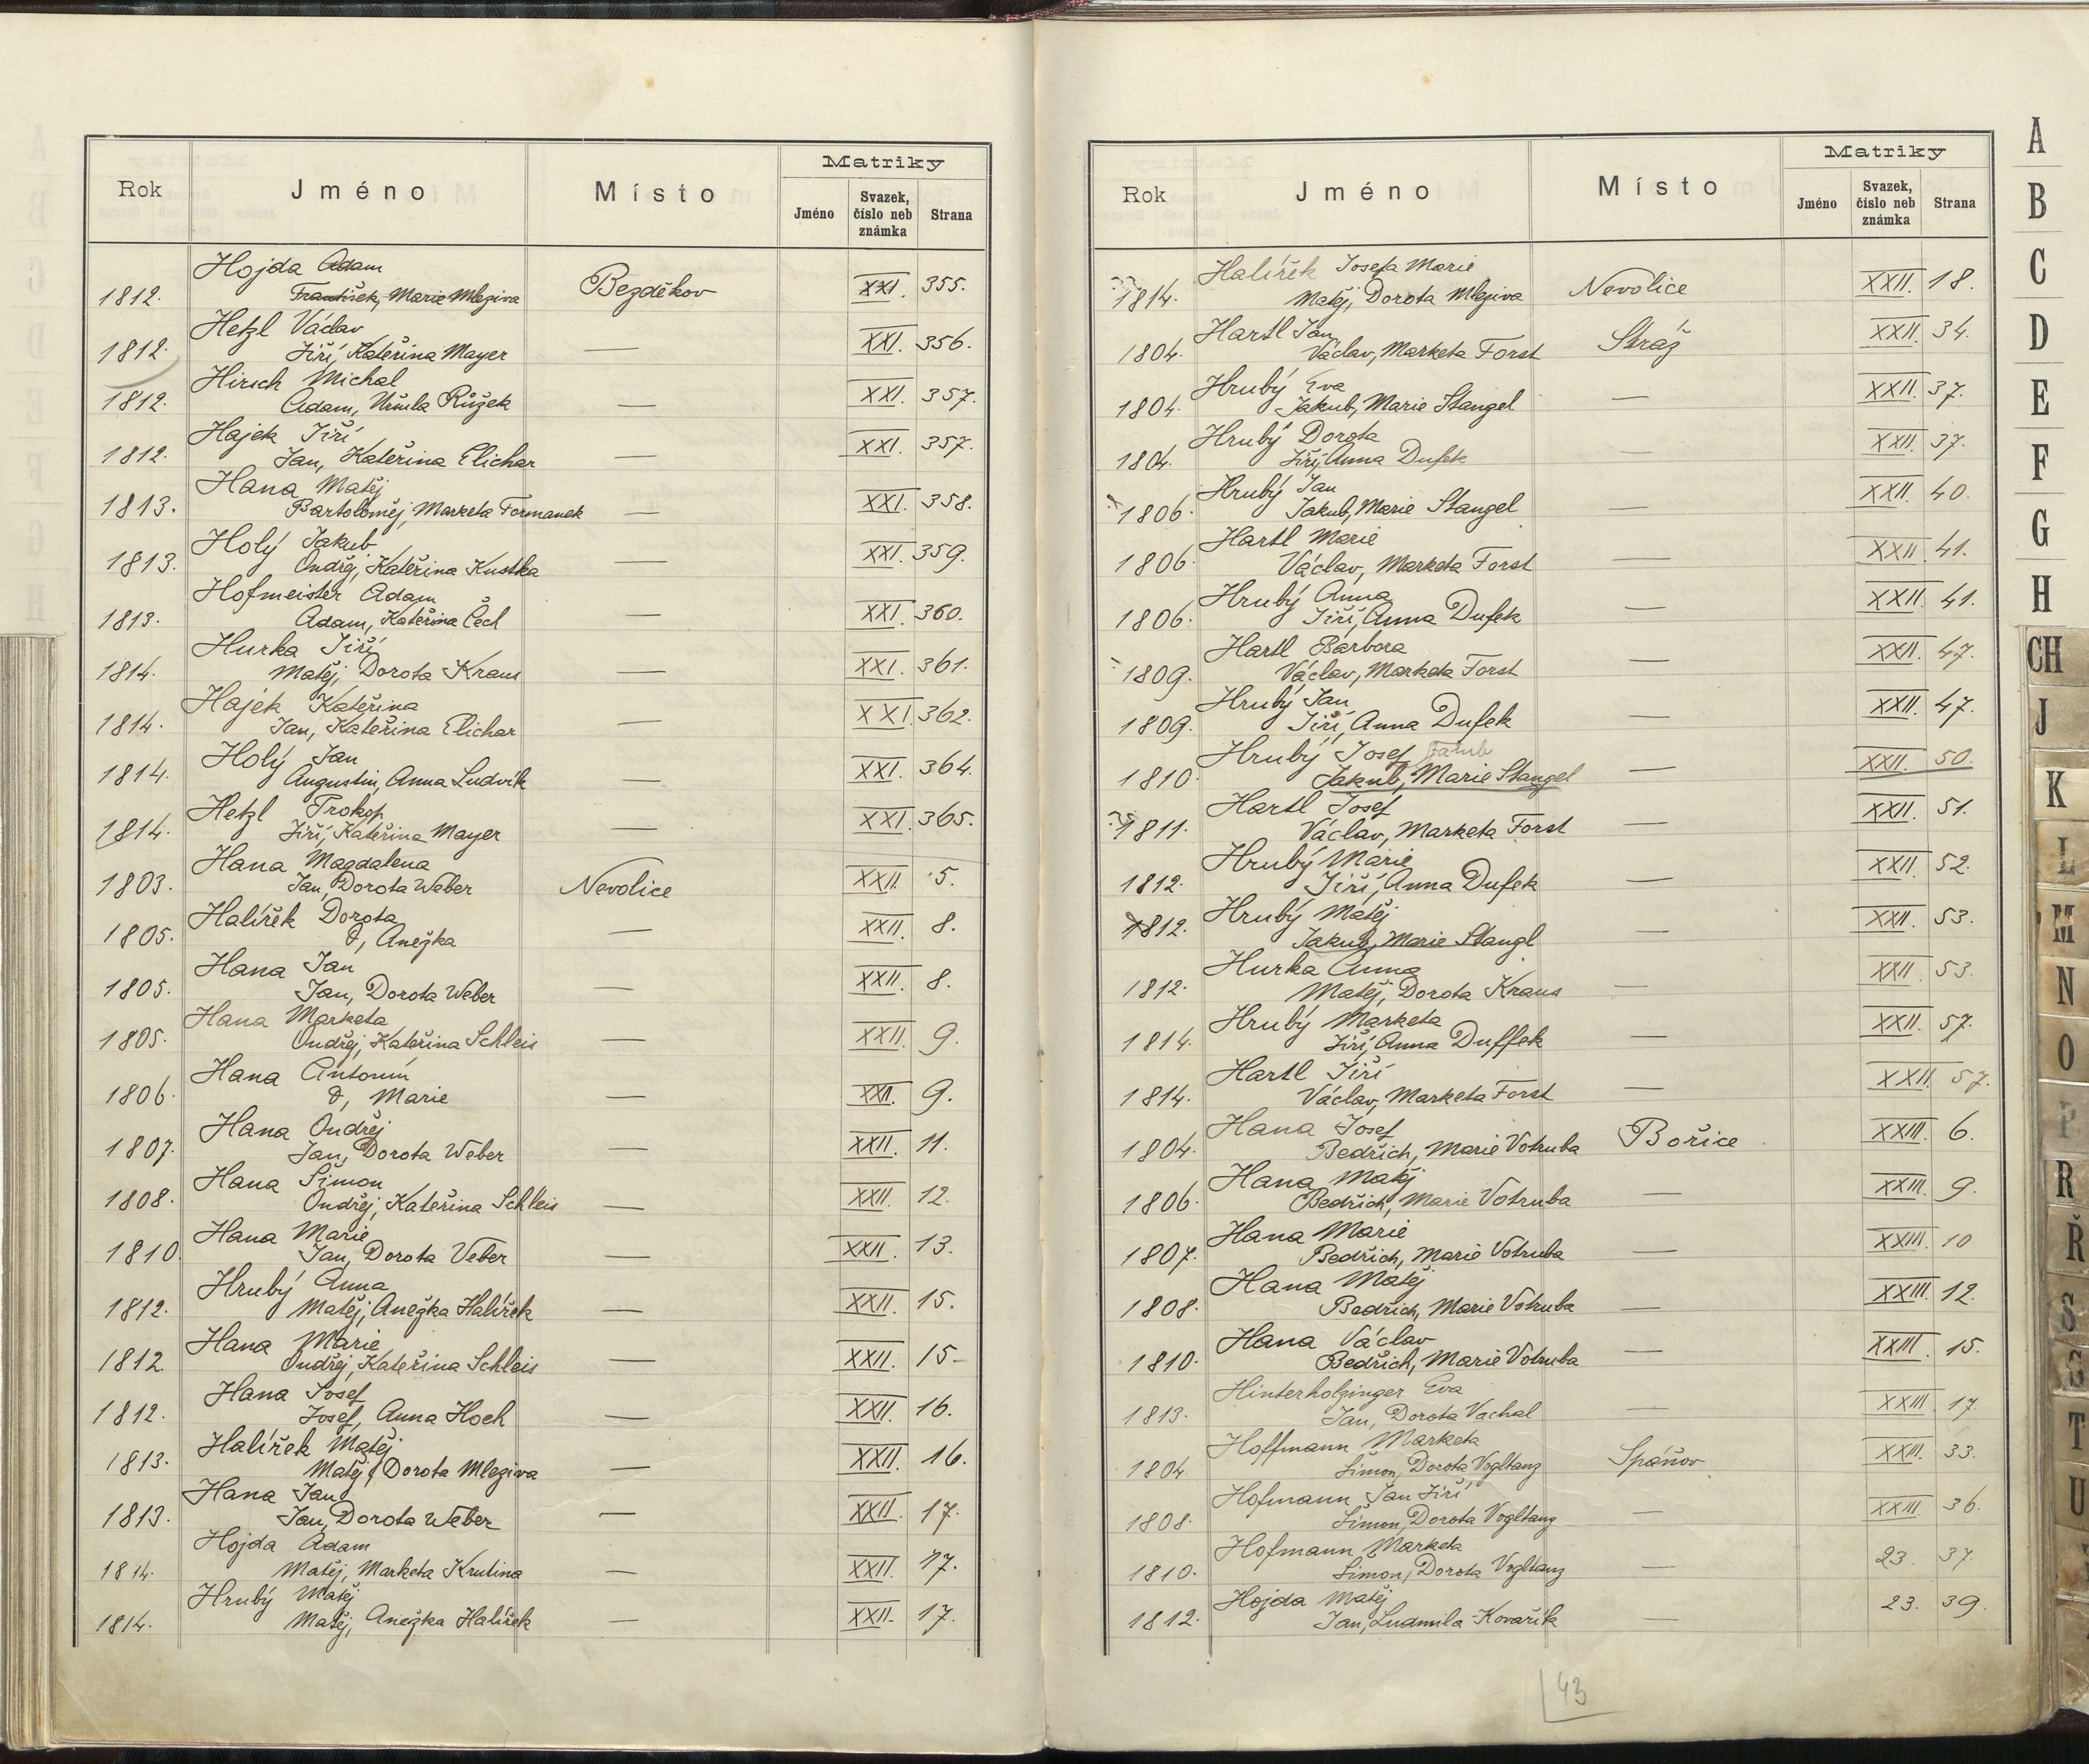 Matriky
Rok Jméno Místo Jméno Svazek, číslo neb známka Strana
Hojda Adam
1812. František, Marie Mleziva Bezděkov XXI. 355.
Hetzl Václav
1812. Jiří, Kateřina Mayer — XXI. 356.
Hirsch Michal
1812. Adam, Uršula Růžek — XXI. 357.
Hajek Jiří
1812. Jan, Kateřina Elichar — XXI. 357.
Hana Matěj
1813. Bartoloměj, Marketa Formanek — XXI. 358.
Holý Jakub
1813. Ondřej, Kateřina Kustka — XXI. 359.
Hofmeister Adam
1813. Adam, Kateřina Čech — XXI. 360.
Hurka Jiří
1814. Matěj, Dorota Kraus — XXI. 361.
Hajek Kateřina
1814. Jan, Kateřina Elichar — XXI. 362.
Holý Jan
1814. Augustin, Anna Ludvík — XXI. 364.
Hetzl Prokop
1814. Jiří, Kateřina Mayer — XXI. 365.
Hana Magdalena
1803. Jan, Dorota Weber Nevolice XXII. 5.
Halířek Dorota
1805. Anežka — XXII. 8.
Hana Jan
1805. Jan, Dorota Weber — XXII. 8.
Hana Marketa
1805. Ondřej, Kateřina Schleis — XXII. 9.
Hana Antonín
1806. Marie — XXII. 9.
Hana Ondřej
1807. Jan, Dorota Weber — XXII. 11.
Hana Šimon
1808. Ondřej, Kateřina Schleis — XXII. 12.
Hana Marie
1810. Jan, Dorota Veber — XXII. 13.
Hrubý Anna
1812. Matěj, Anežka Halířek — XXII. 15.
Hana Marie
1812. Ondřej, Kateřina Schleis — XXII. 15-
Hana Josef
1812. Josef, Anna Hoch — XXII. 16.
Halířek Matěj
1813. Matěj, Dorota Mleziva — XXII. 16.
Hana Jan
1813. Jan, Dorota Weber — XXII. 17.
Hojda Adam
1814. Matěj, Marketa Krutina — XXII. 17.
Hrubý Matěj
1814. Matěj, Anežka Halířek — XXII. 17.
Matriky
Rok Jméno Místo Jméno Svazek, číslo neb známka Strana
Halířek Josefa Marie
1814. Matěj, Dorota Mleziva Nevolice XXII. 18.
Hartl Jan
1804. Václav, Marketa Forst Stráž XXII. 34.
Hrubý Eva
1804. Jakub, Marie Stangel — XXII. 37.
Hrubý Dorota
1804. Jiří, Anna Dufek — XXII. 37.
Hrubý Jan
1806. Jakub, Marie Stangel — XXII. 40.
Hartl Marie
1806. Václav, Marketa Forst — XXII 41.
Hrubý Anna
1806. Jiří, Anna Dufek — XXII. 41.
Hartl Barbora
1809. Václav, Marketa Forst — XXII. 47.
Hrubý Jan
1809. Jiří, Anna Dufek — XXII. 47.
Hrubý Josef Jakub
1810. Jakub, Marie Stangel — XXII. 50.
Hartl Josef
1811. Václav, Marketa Forst — XXII. 51.
Hrubý Marie
1812. Jiří, Anna Dufek — XXII. 52.
Hrubý Matěj
1812. Jakub, Marie Stangl — XXII. 53.
Hurka Anna
1812. Matěj, Dorota Kraus — XXII 53.
Hrubý Marketa
1814. Jiří, Anna Duffek — XXII. 57.
Hartl Jiří
1814. Václav, Marketa Forst — XXII. 57.
Hana Josef
1804. Bedřich, Marie Votruba Bořice XXIII. 6.
Hana Matěj
1806. Bedřich, Marie Votruba — XXIII. 9.
Hana Marie
1807. Bedřich, Marie Votruba — XXIII. 10
Hana Matěj
1808. Bedřich, Marie Votruba — XXIII. 12.
Hana Václav
1810. Bedřich, Marie Votruba — XXIII. 15.
Hinterholzinger Eva
1813. Jan, Dorota Vachal — XXIII. 17.
Hoffmann Marketa
1804 Šimon, Dorota Vogltanz Spáňov XXIII. 33.
Hofmann Jan Jiří
1808. Šimon, Dorota Vogltanz — XXIII. 36.
Hofmann Marketa
1810. Šimon, Dorota Vogltanz — 23. 37.
Hojda Matěj
1812. Jan, Ludmila Kovařík — 23. 39.
43
A
B
C
D
E
F
G
H
CH
J
K
L
M
N
O
P
R
Ř
S
Š
T
U